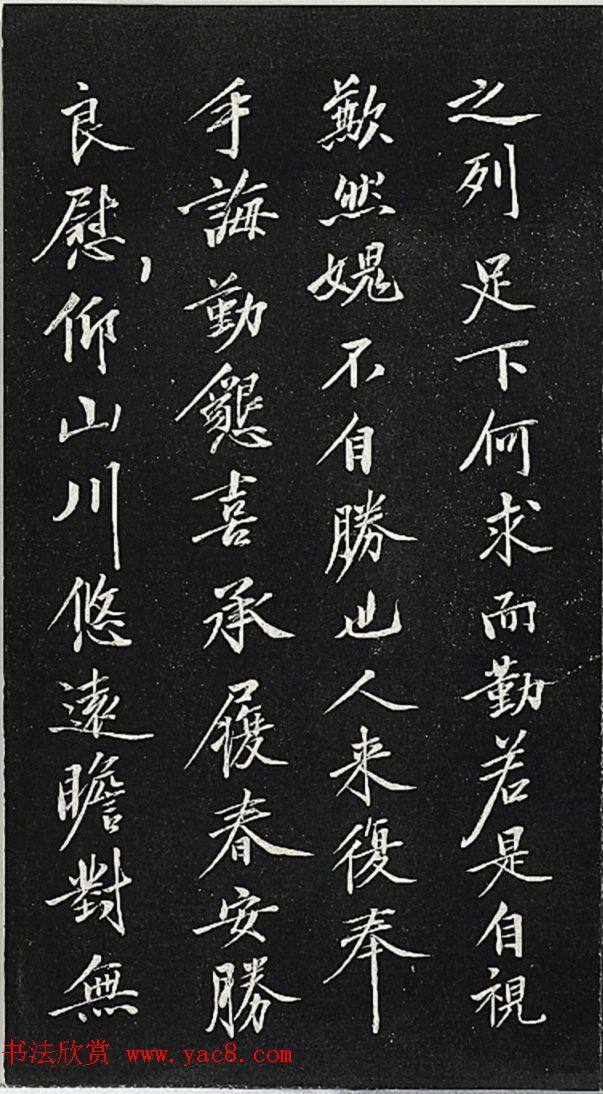 之列足下何求而勤若是自視
歉然媿不自勝也人来復奉
手誨勤懇喜承履春安勝
良慰〻仰山川悠遠瞻對無
书法欣赏 www.yac8.com